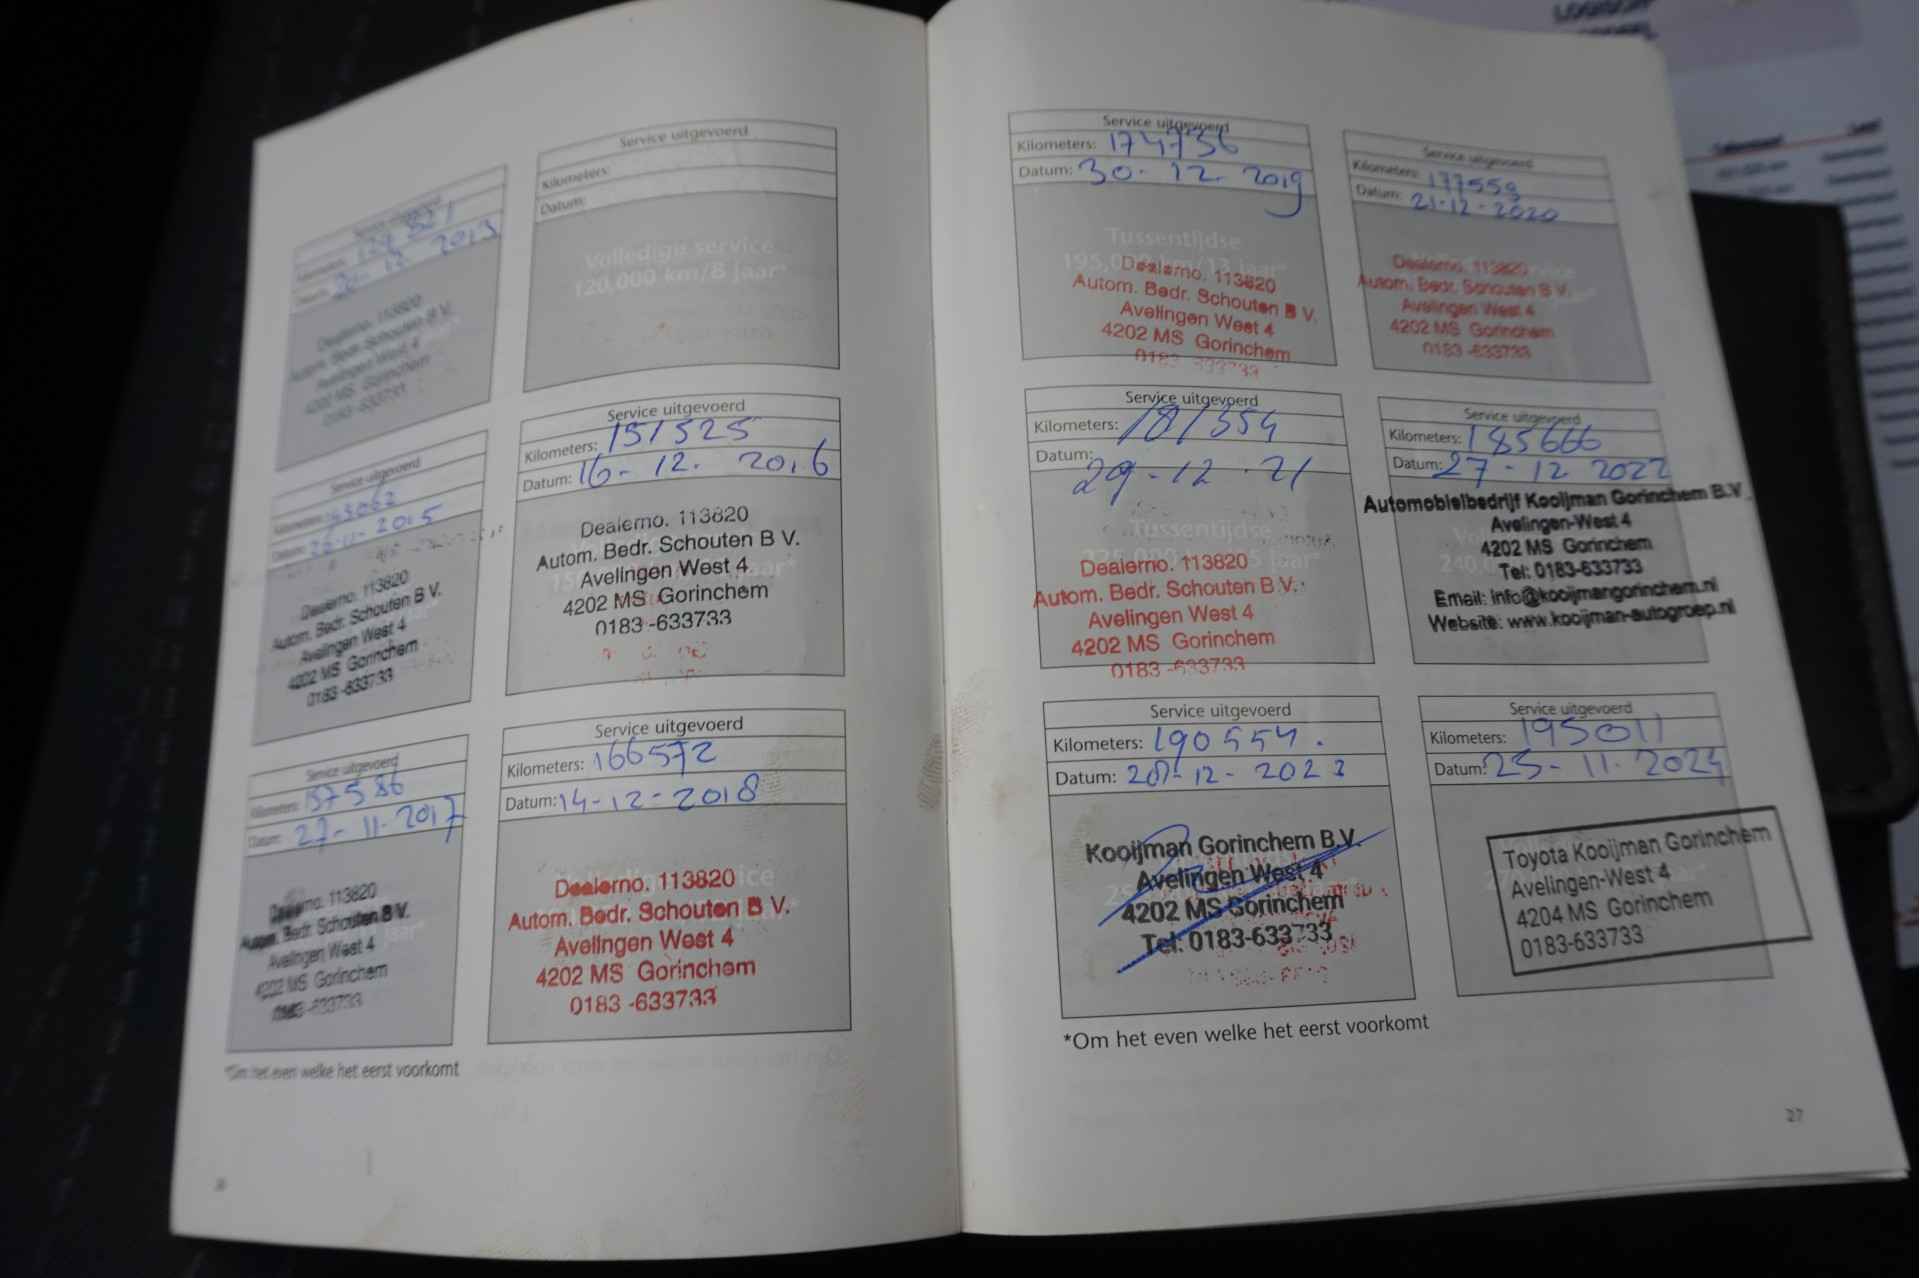 Service uitgevoerd
2013
Dealerno. 113820
Autom. Bedr. Schouten B V.
Avelingen West 4
4202 MS Gorinchem
0183-633733
Service uitgevoerd
Kilometers:
Datum:
Volledige service
120,000 km/8 jaar*
Service uitgevoerd
Kilometers:
Datum: 2015
Dealerno. 113820
Autom. Bedr. Schouten B V.
Avelingen West 4
4202 MS Gorinchem
0183-633733
Service uitgevoerd
Kilometers: 151525
Datum: 16-12. 2016
Dealerno. 113820
Autom. Bedr. Schouten B V.
Avelingen West 4
4202 MS Gorinchem
0183-633733
Service uitgevoerd
Kilometers: 157586
Datum: 27-11-2017
Dealerno. 113820
Autom. Bedr. Schouten B V.
Avelingen West 4
4202 MS Gorinchem
0183-633733
Service uitgevoerd
Kilometers: 166572
Datum: 14-12-2018
Dealerno. 113820
Autom. Bedr. Schouten B V.
Avelingen West 4
4202 MS Gorinchem
0183-633733
*Om het even welke het eerst voorkomt
Service uitgevoerd
Kilometers: 174736
Datum: 30-12-2019
Tussentijdse
195,000 km/13 jaar*
Dealerno. 113820
Autom. Bedr. Schouten B V.
Avelingen West 4
4202 MS Gorinchem
0183-633733
Service uitgevoerd
Kilometers: 177559
Datum: 21-12-2020
Dealerno. 113820
Autom. Bedr. Schouten B V.
Avelingen West 4
4202 MS Gorinchem
0183-633733
Service uitgevoerd
Kilometers: 181354
Datum: 29-12-21
Tussentijdse
Dealerno. 113820
Autom. Bedr. Schouten B V.
Avelingen West 4
4202 MS Gorinchem
0183-633733
Service uitgevoerd
Kilometers: 185666
Datum: 27-12 2022
Automobielbedrijf Kooijman Gorinchem B.V.
Avelingen-West 4
4202 MS Gorinchem
Tel: 0183-633733
Email: info@kooijmangorinchem.nl
Website: www.kooijman-autogroep.nl
Service uitgevoerd
Kilometers: 190554.
Datum: 20-12-2023
Kooijman Gorinchem B.V.
Avelingen West 4
4202 MS Gorinchem
Tel: 0183-633733
Service uitgevoerd
Kilometers: 195011
Datum: 25-11-2024
Toyota Kooijman Gorinchem
Avelingen-West 4
4204 MS Gorinchem
0183-633733
*Om het even welke het eerst voorkomt
27